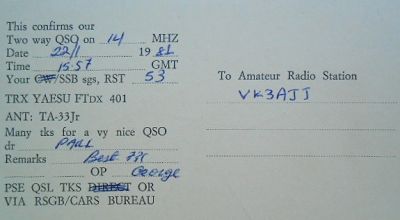 This confirms our
Two way QSO on 14 MHZ
Date 22/1 1981
Time 15.57 GMT
Your CW/SSB sgs, RST 53
TRX YAESU FTDX 401
ANT: TA-33Jr
Many tks for a vy nice QSO
dr PAUL
Remarks Best 73s
OP George
PSE QSL TKS DIRECT OR
VIA RSGB/CARS BUREAU
To Amateur Radio Station
VK3AJJ